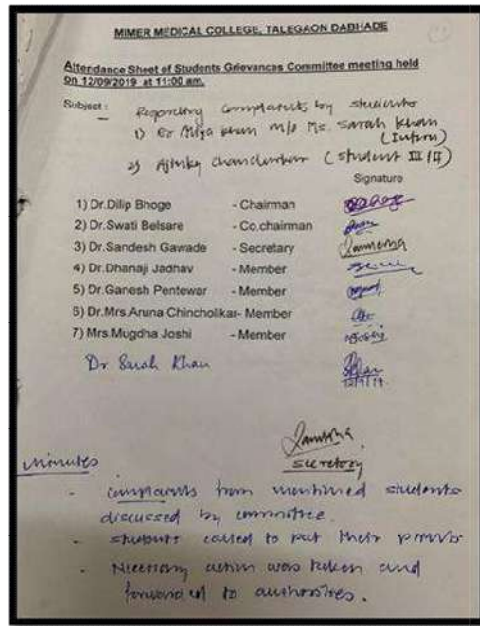 MIMER MEDICAL COLLEGE, TALEGAON DABHADE
Attendance Sheet of Students Grievances Committee meeting held
On 12/09/2019 at 11:00 am.
Subject : Regarding complaints by students
1) Er Aliya Khan m/o Ms. Sarah Khan
(Intern)
2) (Student III/II)
Signature
1) Dr.Dilip Bhoge - Chairman
2) Dr.Swati Belsare - Co.chairman
3) Dr.Sandesh Gawade - Secretary
4) Dr.Dhanaji Jadhav - Member
5) Dr.Ganesh Pentewar - Member
6) Dr.Mrs.Aruna Chincholikar- Member
7) Mrs.Mugdha Joshi - Member
Dr Sarah Khan
Secretory
Minutes
- complaints from mentioned students
discussed by committee.
- students called to put their
- Necessary action was taken and
forwarded to authorities.